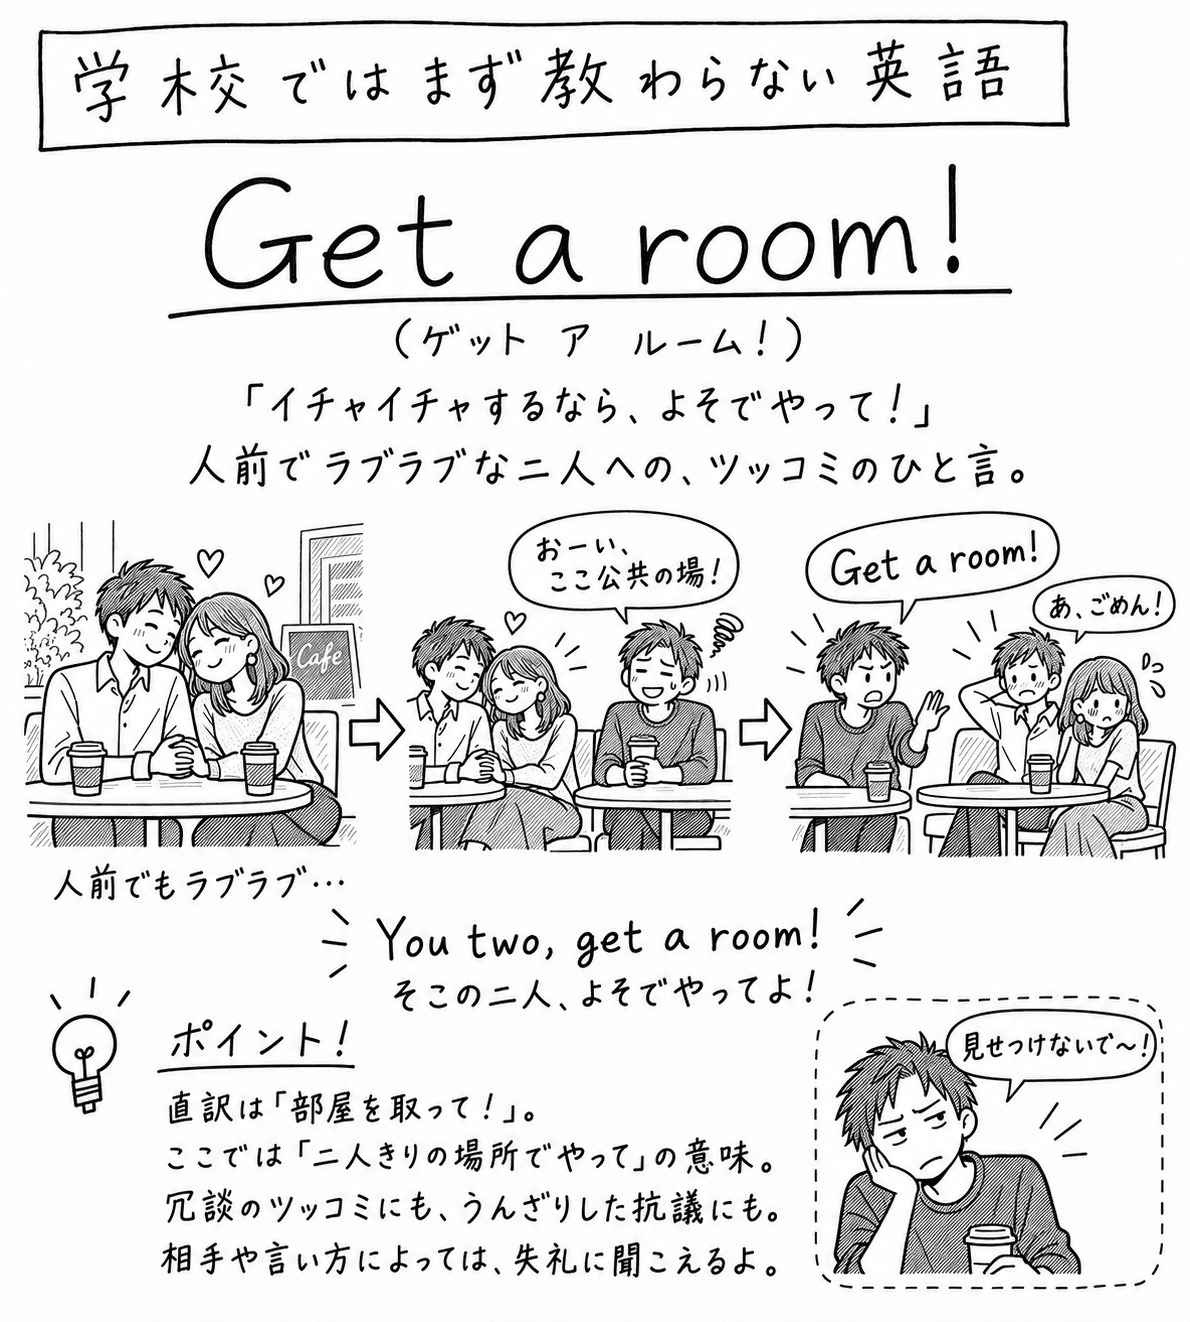 学校ではまず教わらない英語
Get a room!
（ゲット ア ルーム！）
「イチャイチャするなら、よそでやって！」
人前でラブラブな二人への、ツッコミのひと言。
Cafe
おーい、
ここ公共の場！
Get a room!
あ、ごめん！
人前でもラブラブ…
You two, get a room!
そこの二人、よそでやってよ！
ポイント！
直訳は「部屋を取って！」。
ここでは「二人きりの場所でやって」の意味。
冗談のツッコミにも、うんざりした抗議にも。
相手や言い方によっては、失礼に聞こえるよ。
見せつけないで〜！